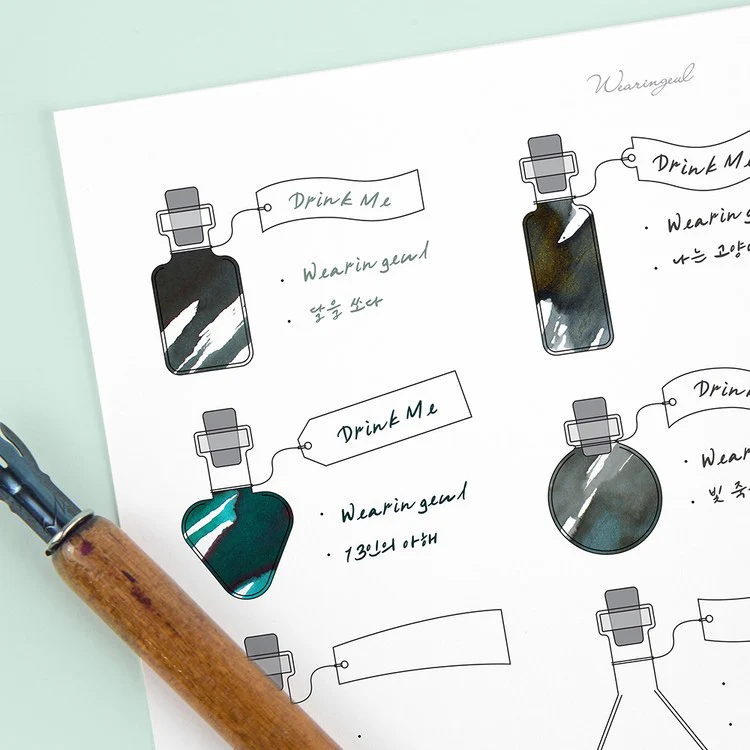 Wearingeul
Drink Me
Wearingeul
달을 쏘다
Drink Me
Wearing
나는 고양이
Drink Me
Wearingeul
13인의 아해
Drink
Wear
빛